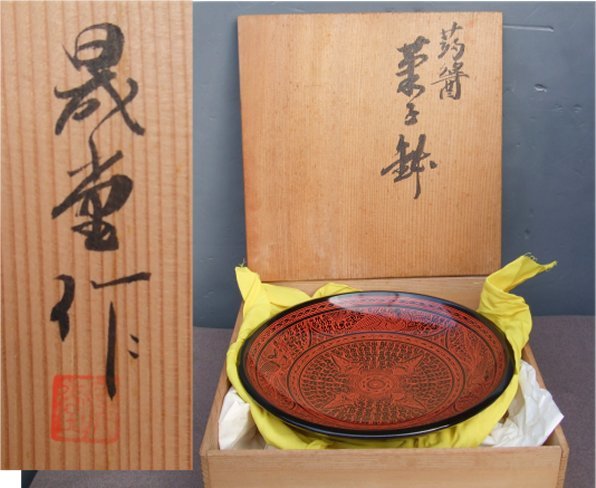 晟堂作
蒟醤
菓子鉢